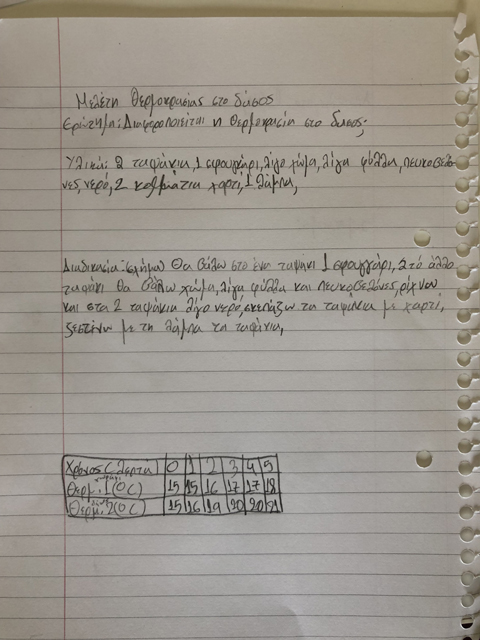 Μελέτη θερμοκρασίας στο δάσος
Ερώτημα: Διαφοροποιείται η θερμοκρασία στο δάσος;
Υλικά: 2 ταψάκια, 1 σφουγγάρι, λίγο χώμα, λίγα φύλλα, πευκοβελό
νες, νερό, 2 κομμάτια χαρτί, 1 λάμπα,
Διαδικασία: Θα βάλω στο ένα ταψάκι 1 σφουγγάρι, στο άλλο
ταψάκι θα βάλω χώμα, λίγα φύλλα και πευκοβελόνες, ρίχνω
και στα 2 ταψάκια λίγο νερό, σκεπάζω τα ταψάκια με χαρτί,
ζεσταίνω με τη λάμπα τα ταψάκια,
Χρόνος (λεπτά) 0 1 2 3 4 5
Θερμ. 1 (0 C) 15 15 16 17 17 18
Θερμ. 2 (0 C) 15 16 19 20 20 21